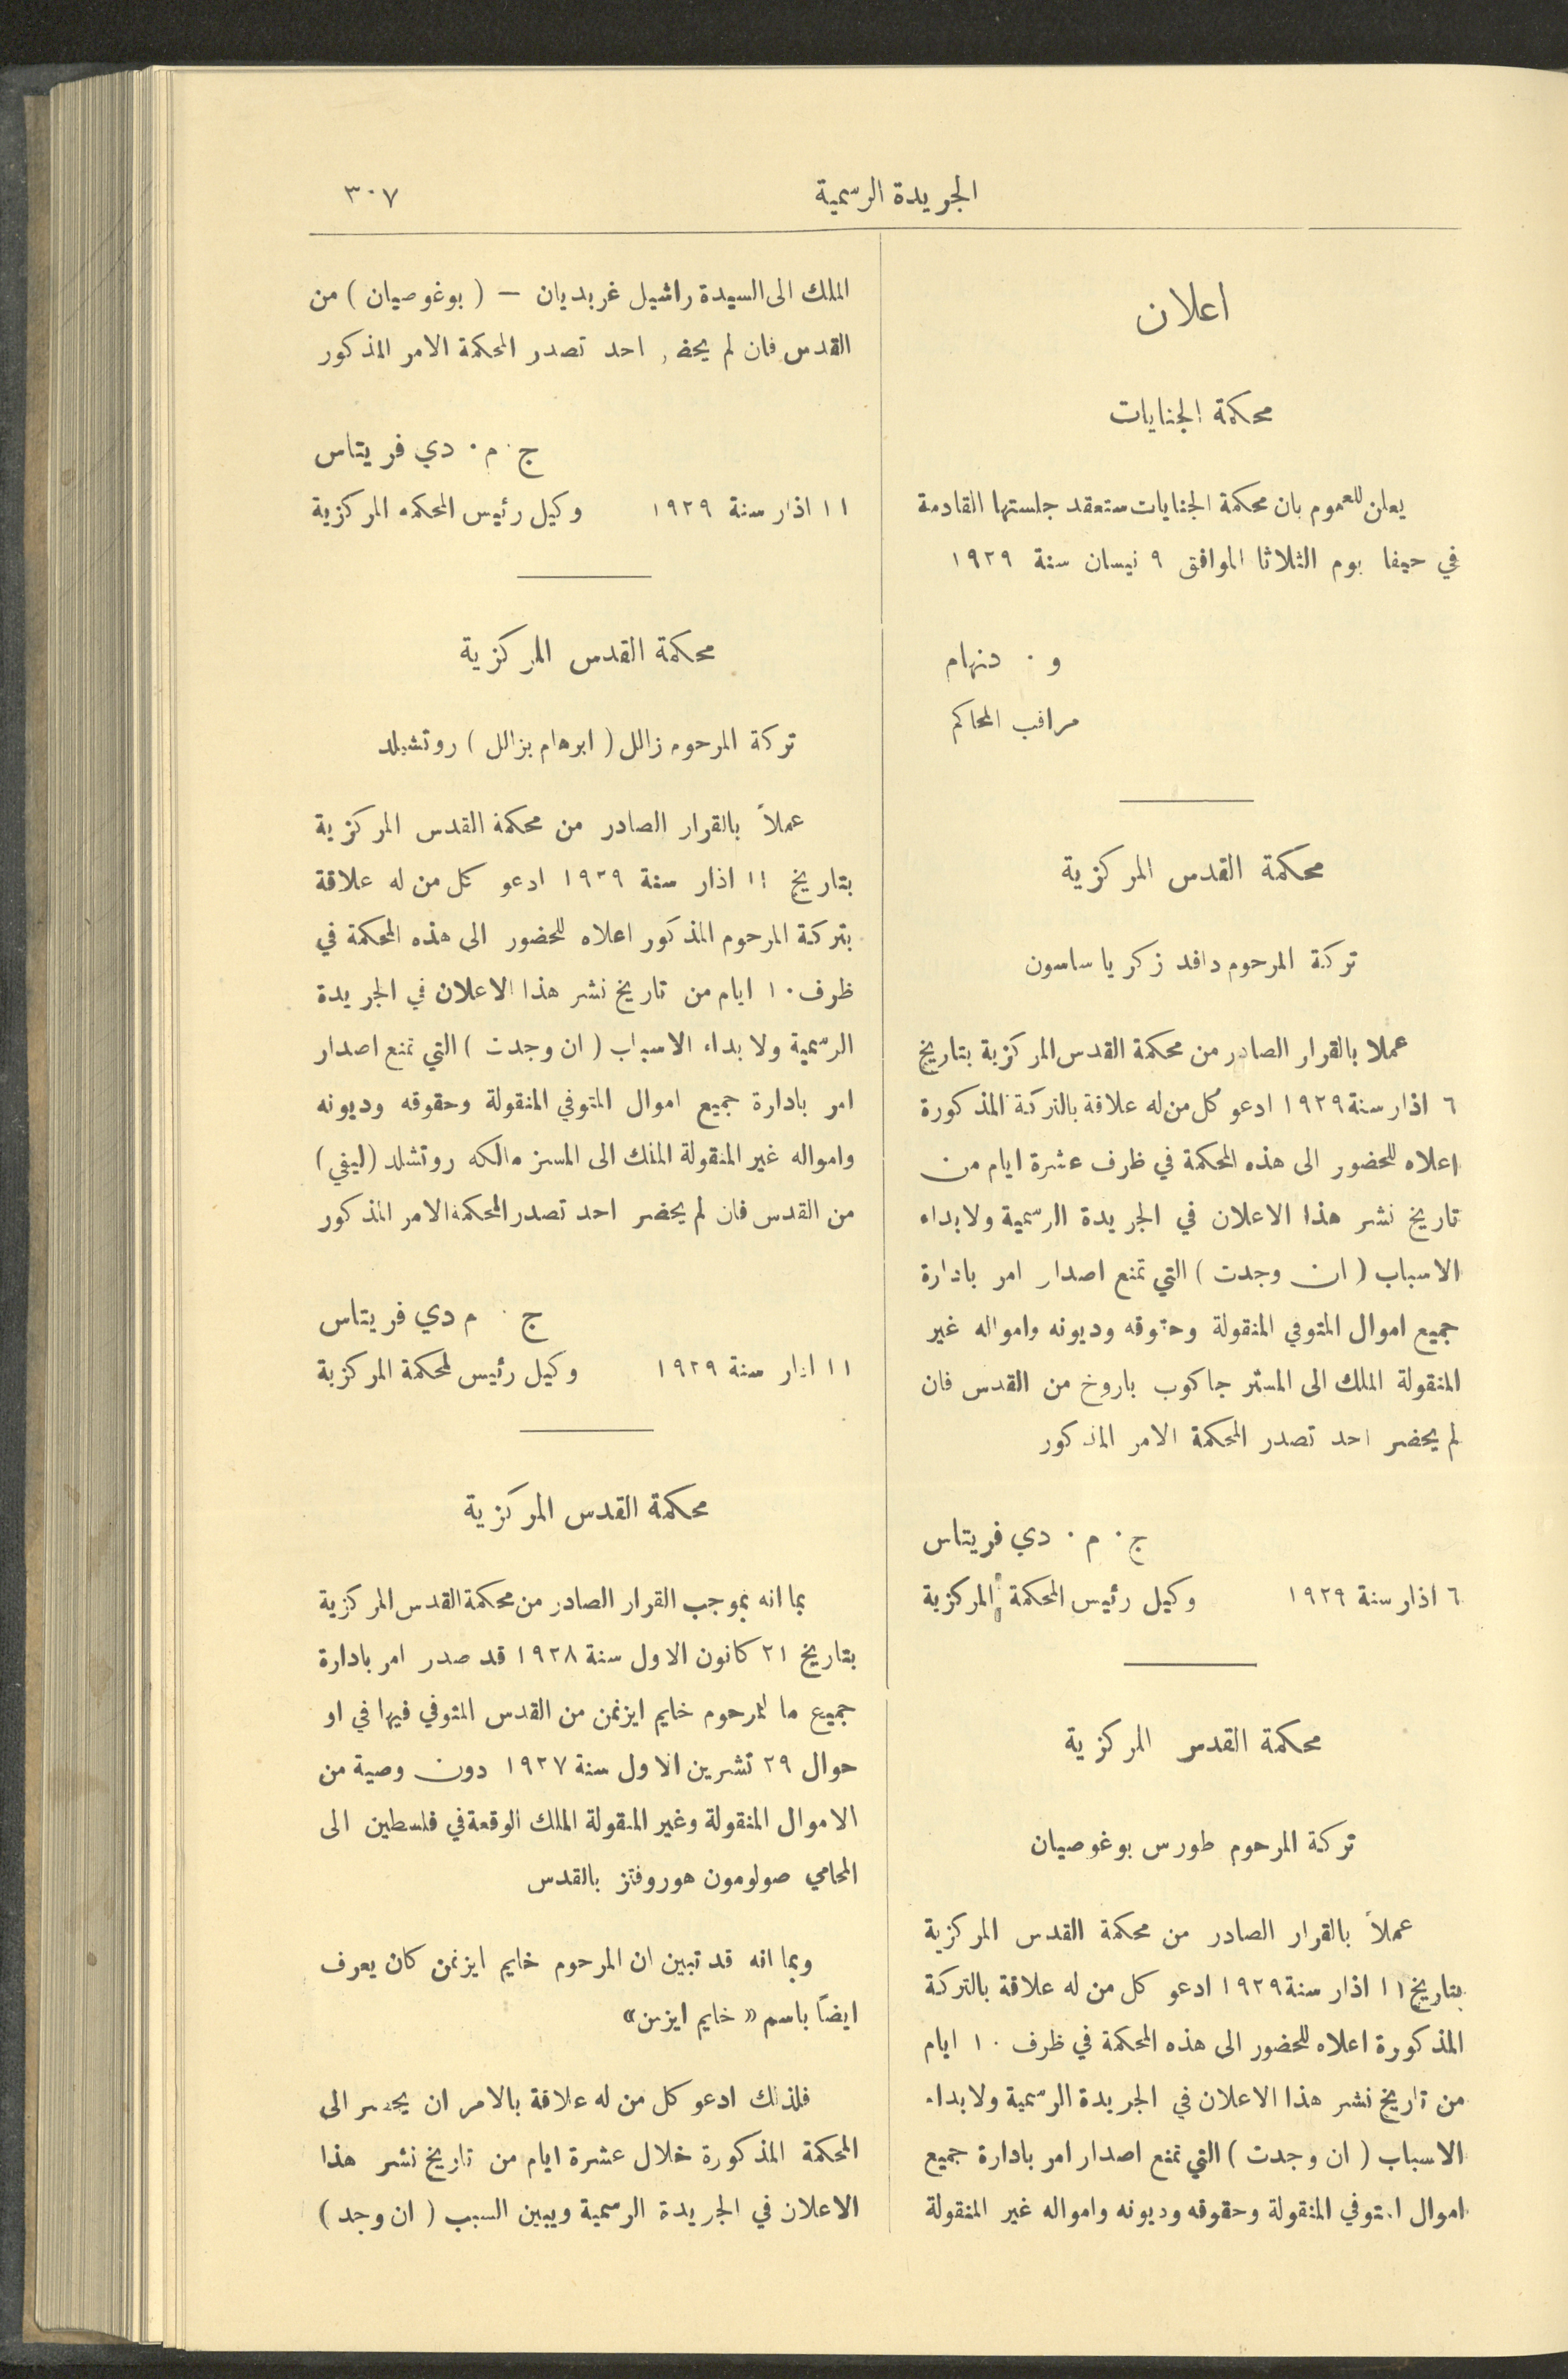 الجريدة الرسمية
٣٠٧
اعلان
محكمة الجنايات
يعلن للعموم بان محكمة الجنايات ستعقد جلستها القادمة
في حيفا يوم الثلاثا الموافق ٩ نيسان سنة ١٩٢٩
و ٠ دنهام
مراقب المحاكم
محكمة القدس المركزية
تركة المرحوم دافد زكريا ساسون
عملا بالقرار الصادر من محكمة القدس المركزية بتاريخ
٦ اذار سنة ١٩٢٩ ادعو كل من له علاقة بالتركة المذكورة
اعلاه للحضور الى هذه المحكمة في ظرف عشرة ايام من
تاريخ نشر هذا الاعلان في الجريدة الرسمية ولابداء
الاسباب ( ان وجدت ) التي تمنع اصدار امر بادارة
جميع اموال المتوفي المنقولة وحقوقه وديونه وامواله غير
المنقولة الملك الى المستر جاكوب باروخ من القدس فان
لم يحضر احد تصدر المحكمة الامر المذكور
ج ٠ م ٠ دي فريتاس
٦ اذار سنة ١٩٢٩ وكيل رئيس المحكمة المركزية
محكمة القدس المركزية
تركة المرحوم طورس بوغوصيان
عملاً بالقرار الصادر من محكمة القدس المركزية
بتاريخ ١١ اذار سنة ١٩٢٩ ادعو كل من له علاقة بالتركة
المذكورة اعلاه للحضور الى هذه المحكمة في ظرف ١٠ ايام
من تاريخ نشر هذا الاعلان في الجريدة الرسمية ولابداء
الاسباب ( ان وجدت ) التي تمنع اصدار امر بادارة جميع
اموال المتوفي المنقولة وحقوقه وديونه وامواله غير المنقولة
الملك الى السيدة راشيل غربديان – ( بوغوصيان ) من
القدس فان لم يحضر احد تصدر المحكمة الامر المذكور
ج ٠ م ٠ دي فريتاس
١١ اذار سنة ١٩٢٩ وكيل رئيس المحكمه المركزية
محكمة القدس المركزية
تركة المرحوم زالل ( ابرهام بزالل ) روتشيلد
عملاً بالقرار الصادر من محكمة القدس المركزية
بتاريخ ١١ اذار سنة ١٩٢٩ ادعو كل من له علاقة
بتركة المرحوم المذكور اعلاه للحضور الى هذه المحكمة في
ظرف ١٠ ايام من تاريخ نشر هذا الاعلان في الجريدة
الرسمية ولابداء الاسباب ( ان وجدت ) التي تمنع اصدار
امر بادارة جميع اموال المتوفي المنقولة وحقوقه وديونه
وامواله غير المنقولة الملك الى المسز مالكه روتشلد (ليفي)
من القدس فان لم يحضر احد تصدر المحكمة الامر المذكور
ج ٠ م دي فريتاس
١١ اذار سنة ١٩٢٩ وكيل رئيس لمحكمة المركزية
محكمة القدس المركزية
بما انه بموجب القرار الصادر من محكمة القدس المركزية
بتاريخ ٢١ كانون الاول سنة ١٩٢٨ قد صدر امر بادارة
جميع ما للمرحوم خايم ايزنمن من القدس المتوفي فيها في او
حوال ٢٩ تشرين الاول سنة ١٩٢٧ دون وصية من
الاموال المنقولة وغير المنقولة الملك الوقعة في فلسطين الى
المحامي صولومون هوروفتز بالقدس
وبما انه قد تبين ان المرحوم خايم ايزنمن كان يعرف
ايضاً باسم « خايم ايزمن»
فلذلك ادعو كل من له علاقة بالامر ان يحضر الى
المحكمة المذكورة خلال عشرة ايام من تاريخ نشر هذا
الاعلان في الجريدة الرسمية ويبين السبب ( ان وجد )